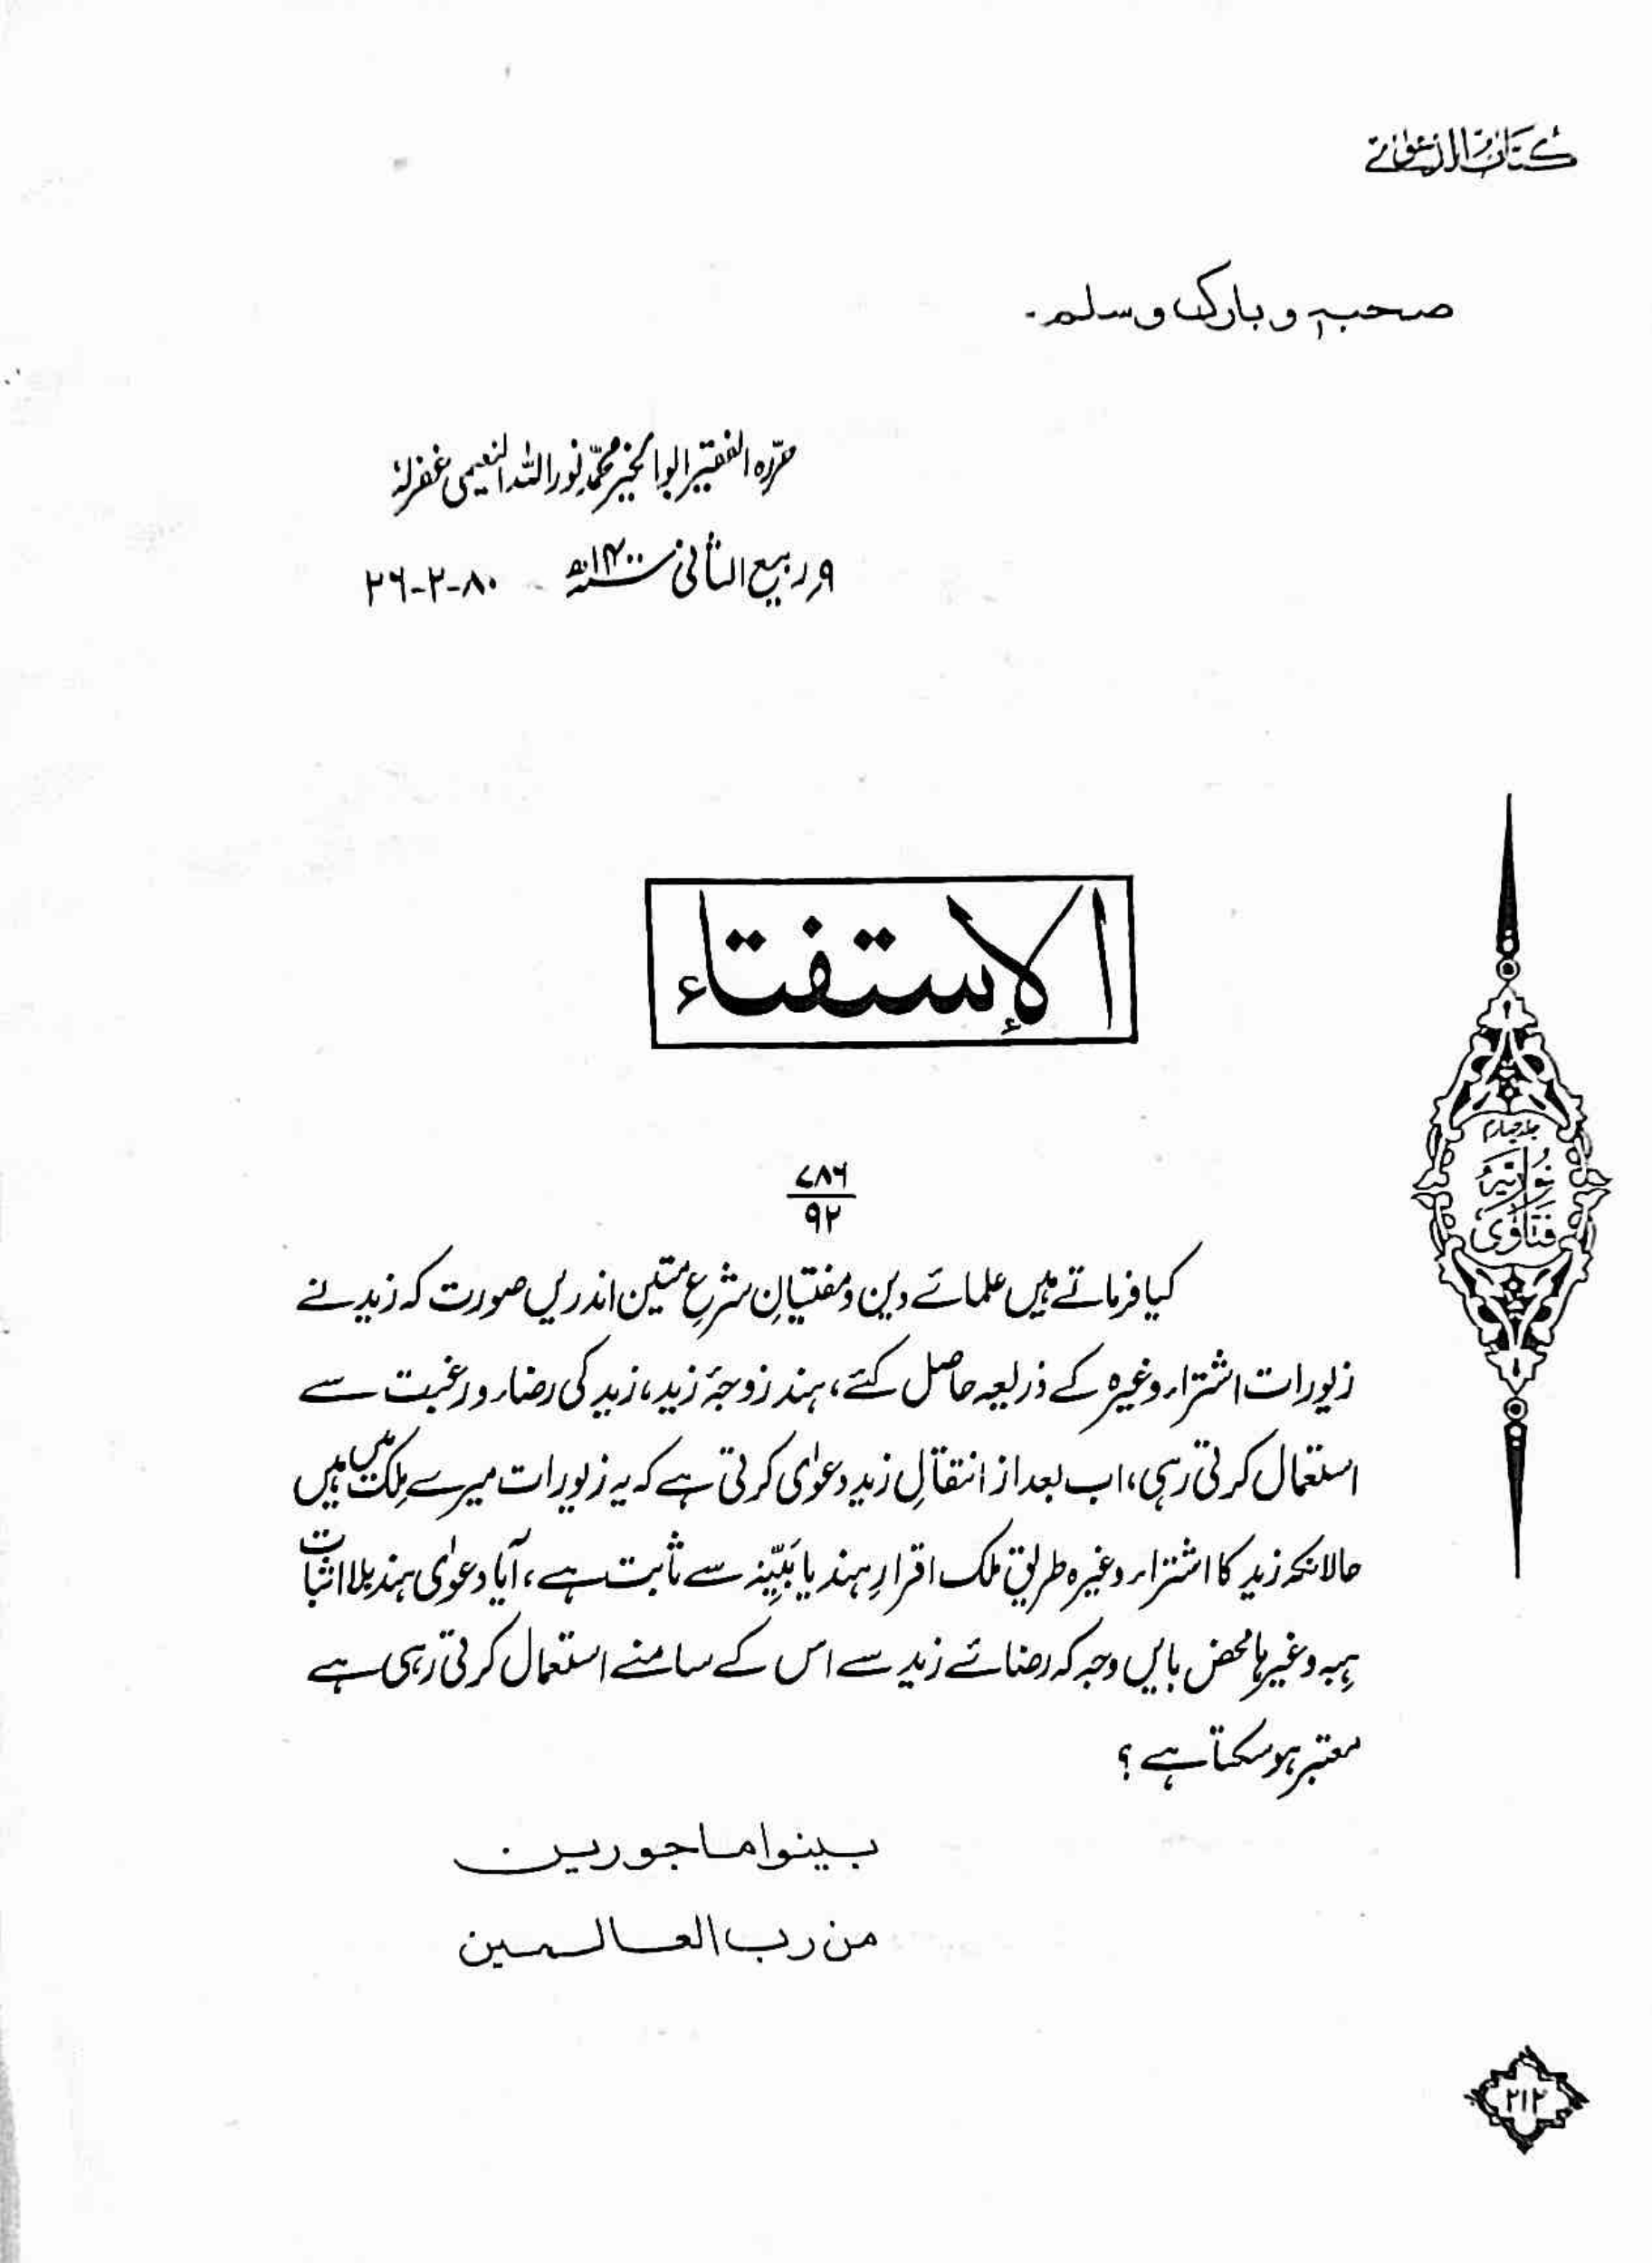 کتاب الدعوٰی
صحبہٖ و بارک و سلم۔
حرّرہ الفقیر ابوالخیر محمّد نور اللہ النعیمی غفرلہٗ
۹ ربیع الثانی سنہ ۱۴۰۰ھ - ۸۰-۲-۲۶
الإستفتاء
۷۸۶
۹۲
کیا فرماتے ہیں علمائے دین و مفتیانِ شرعِ متین اندریں صورت کہ زید نے
زیورات اشتراء وغیرہ کے ذریعہ حاصل کئے، ہند زوجۂ زید، زید کی رضاء و رغبت سے
استعمال کرتی رہی، اب بعد از انتقالِ زید دعوٰی کرتی ہے کہ یہ زیورات میرے مِلک میں ہیں
حالانکہ زید کا اشتراء وغیرہ طریقِ ملک اقرارِ ہند یا بَیِّنہ سے ثابت ہے، آیا دعوٰی ہند بلا اثبات
ہِبہ وغیرہا محض بایں وجہ کہ رضائے زید سے اس کے سامنے استعمال کرتی رہی ہے
معتبر ہو سکتا ہے ؟
بینوا ماجورین
من رب العالمین
جلد چہارم
نوریہ
فتاوٰی
۲۱۲